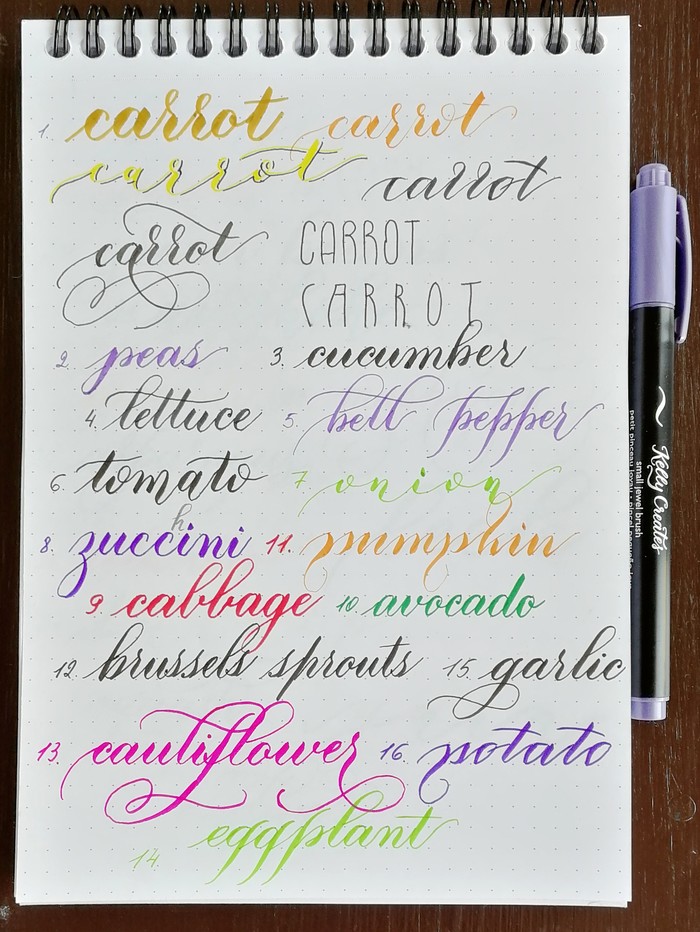 1. carrot carrot
carrot carrot
carrot CARROT
CARROT
2. peas 3. cucumber
4. lettuce 5. bell pepper
6. tomato 7. onion
h
8. zuccini 11. pumpkin
9. cabbage 10. avocado
12. brussels sprouts 15. garlic
13. cauliflower 16. potato
14. eggplant
Kelly Creates
small jewel brush